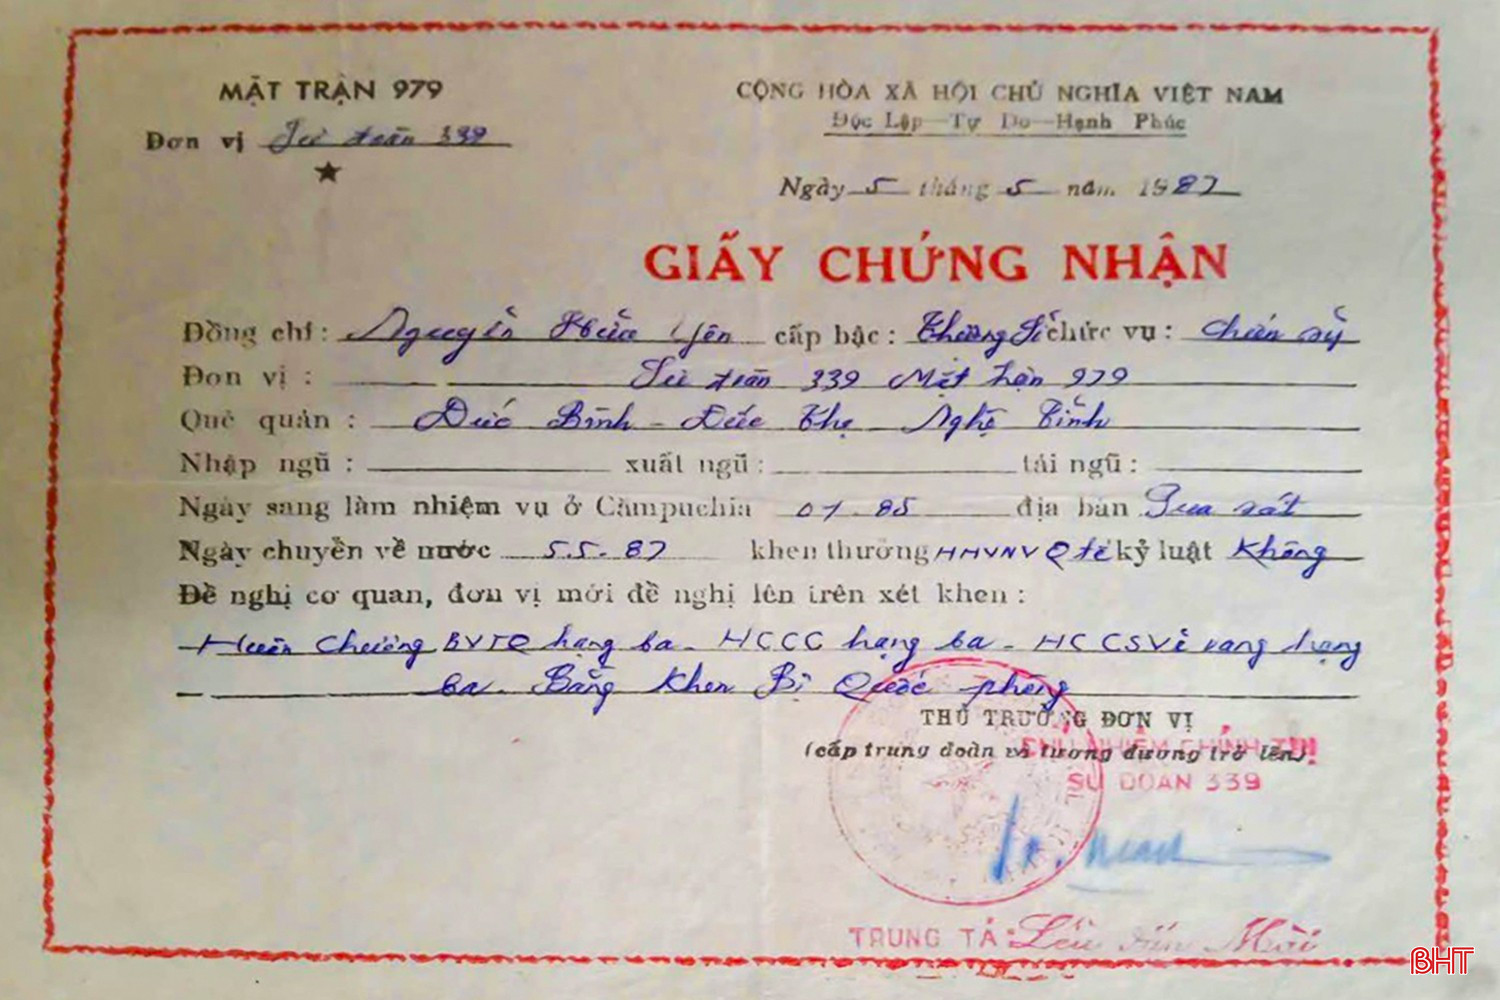 MẶT TRẬN 979
CỘNG HÒA XÃ HỘI CHỦ NGHĨA VIỆT NAM
Đơn vị Sư đoàn 339
Độc Lập – Tự Do – Hạnh Phúc
Ngày 5 tháng 5 năm 1987
GIẤY CHỨNG NHẬN
Đồng chí: Nguyễn Hữu Yên cấp bậc: Thượng Sĩ chức vụ: chiến sỹ
Đơn vị: Sư đoàn 339 Mặt trận 979
Quê quán: Đức Bình - Đức Thọ - Nghệ Tĩnh
Nhập ngũ: xuất ngũ: tái ngũ:
Ngày sang làm nhiệm vụ ở Cămpuchia 01.85 địa bàn Pua sát
Ngày chuyển về nước 5.5.87 khen thưởng HHVNV Q tế kỷ luật Không
Đề nghị cơ quan, đơn vị mới đề nghị lên trên xét khen:
Huân Chương BVTQ hạng ba - HCCC hạng ba - HC CSVẻ vang hạng
ba. Bằng Khen Bộ Quốc phòng
THỦ TRƯỞNG ĐƠN VỊ
(cấp trung đoàn và tương đương trở lên)
CHỦ NHIỆM CHÍNH TRỊ
SƯ ĐOÀN 339
TRUNG TÁ:
BHT